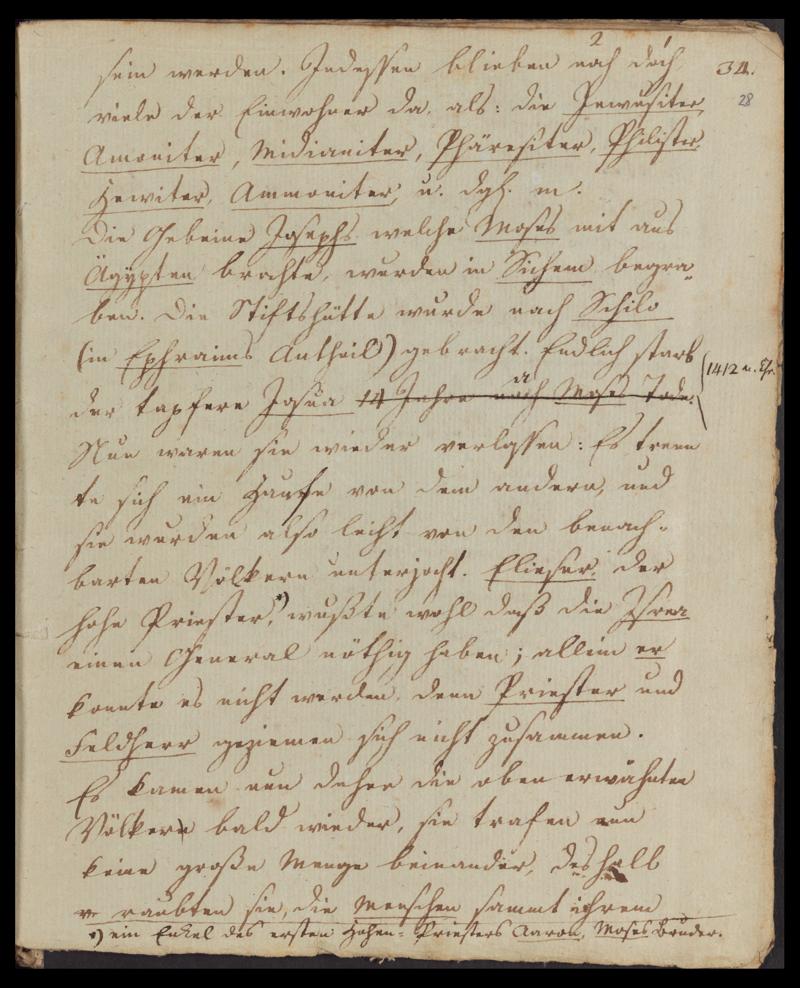 34.
28
sein werden. Indessen blieben noch doch
viele der Einwohner da, als: die Jewusiter,
Amoniter, Midianiter, Phäresiter, Philister,
Hewiter, Ammoniter, u. dgl. m.
Die Gebeine Josephs welche Moses mit aus
Ägypten brachte, wurden in Sichem begra-
ben. Die Stiftshütte wurde nach Schilo
(in Ephraims Antheil) gebracht. Endlich starb
der tapfere Josua 14 Jahre nach Moses Tode.
(1412 v. Chr.
Nun waren sie wieder verlassen: Es trenn
te sich ein Haufe von dem andern, und
sie wurden also leicht von den benach-
barten Völkern unterjocht. Elieser, der
hohe Priester, *) wußte wohl daß die Isrer
einen General nöthig haben; allein er
konnte es nicht werden, denn Priester und
Feldherr geziemen sich nicht zusammen.
Es kamen nun daher die oben erwähnten
Völkern bald wieder, sie trafen nun
keine große Menge beinander, deshalb
raubten sie, die Menschen sammt ihrem
*) ein Enkel des ersten Hohen-Priesters Aaron, Moses Bruder.